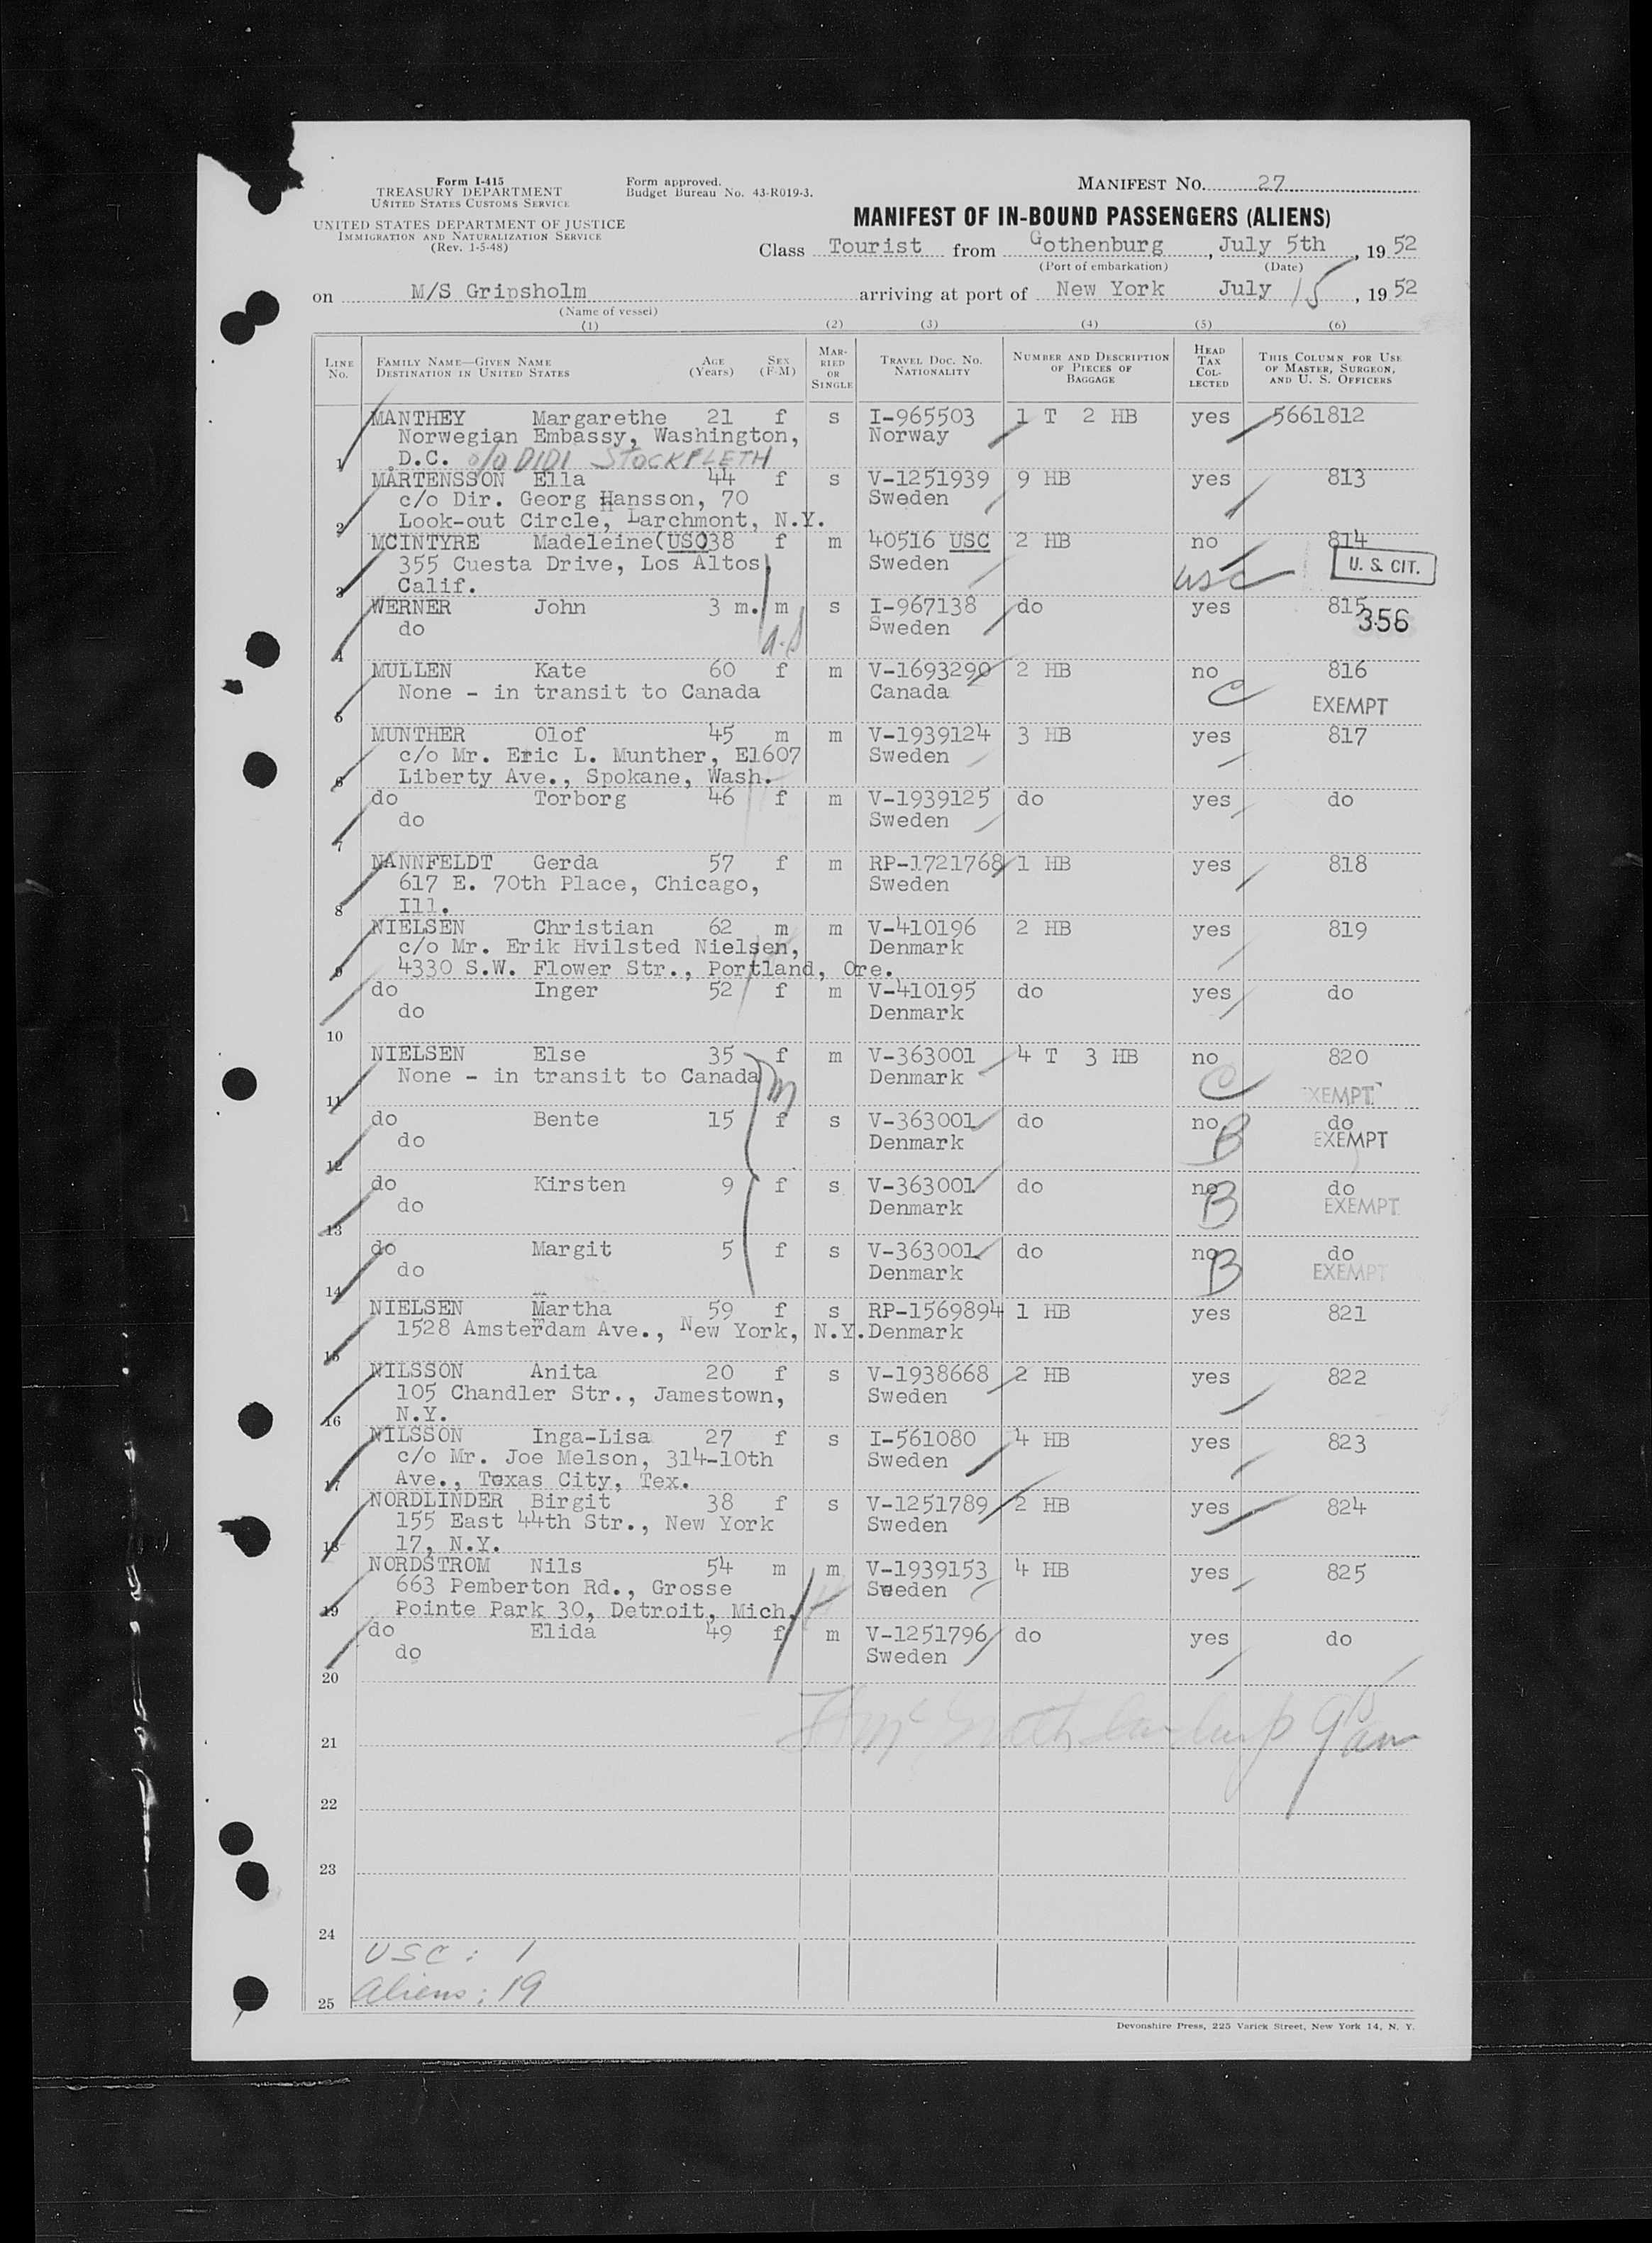 Form I-415
TREASURY DEPARTMENT
UNITED STATES CUSTOMS SERVICE
UNITED STATES DEPARTMENT OF JUSTICE
IMMIGRATION AND NATURALIZATION SERVICE
(Rev. 1-5-48)
Form approved.
Budget Bureau No. 43-R019-3.
MANIFEST NO. 27
MANIFEST OF IN-BOUND PASSENGERS (ALIENS)
Class Tourist from Gothenburg, July 5th, 1952
(Port of embarkation) (Date)
on M/S Gripsholm arriving at port of New York July 15, 1952
(Name of vessel)
(1) (2) (3) (4) (5) (6)
LINE NO. FAMILY NAME—GIVEN NAME DESTINATION IN UNITED STATES AGE (Years) SEX (F-M) MARRIED OR SINGLE TRAVEL DOC. NO. NATIONALITY NUMBER AND DESCRIPTION OF PIECES OF BAGGAGE HEAD TAX COLLECTED THIS COLUMN FOR USE OF MASTER, SURGEON, AND U. S. OFFICERS
MANTHEY Margarethe 21 f s I-965503 1 T 2 HB yes 5661812
Norwegian Embassy, Washington, Norway
1 D.C. c/o DIDI STOCKFLETH
MÅRTENSSON Ella 44 f s V-1251939 9 HB yes 813
c/o Dir. Georg Hansson, 70 Sweden
2 Look-out Circle, Larchmont, N.Y.
MCINTYRE Madeleine(USC)38 f m 40516 USC 2 HB no 814
355 Cuesta Drive, Los Altos, Sweden usc U. S. CIT.
3 Calif.
WERNER John 3 m. m s I-967138 do yes 815
do Sweden 356
4
MULLEN Kate 60 f m V-1693290 2 HB no 816
None - in transit to Canada Canada C EXEMPT
5
MUNTHER Olof 45 m m V-1939124 3 HB yes 817
c/o Mr. Eric L. Munther, E1607 Sweden
6 Liberty Ave., Spokane, Wash.
do Torborg 46 f m V-1939125 do yes do
do Sweden
7
NANNFELDT Gerda 57 f m RP-1721768 1 HB yes 818
617 E. 70th Place, Chicago, Sweden
8 Ill.
NIELSEN Christian 62 m m V-410196 2 HB yes 819
c/o Mr. Erik Hvilsted Nielsen, Denmark
9 4330 S.W. Flower Str., Portland, Ore.
do Inger 52 f m V-410195 do yes do
do Denmark
10
NIELSEN Else 35 f m V-363001 4 T 3 HB no 820
None - in transit to Canada Denmark C EXEMPT
11
do Bente 15 f s V-363001 do no do
do Denmark B EXEMPT
12
do Kirsten 9 f s V-363001 do no do
do Denmark B EXEMPT
13
do Margit 5 f s V-363001 do no do
do Denmark B EXEMPT
14
NIELSEN Martha 59 f s RP-1569894 1 HB yes 821
1528 Amsterdam Ave., New York, N.Y. Denmark
15
NILSSON Anita 20 f s V-1938668 2 HB yes 822
105 Chandler Str., Jamestown, Sweden
16 N.Y.
NILSSON Inga-Lisa 27 f s I-561080 4 HB yes 823
c/o Mr. Joe Melson, 314-10th Sweden
17 Ave., Texas City, Tex.
NORDLINDER Birgit 38 f s V-1251789 2 HB yes 824
155 East 44th Str., New York Sweden
18 17, N.Y.
NORDSTROM Nils 54 m m V-1939153 4 HB yes 825
663 Pemberton Rd., Grosse Sweden
19 Pointe Park 30, Detroit, Mich.
do Elida 49 f m V-1251796 do yes do
do Sweden
20
21
22
23
24
USC: 1
25 Aliens: 19
Devonshire Press, 225 Varick Street, New York 14, N. Y.